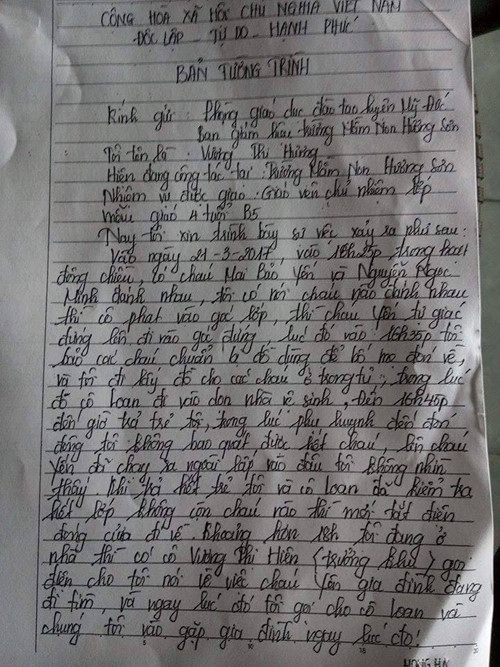 CỘNG HÒA XÃ HỘI CHỦ NGHĨA VIỆT NAM
ĐỘC LẬP - TỰ DO - HẠNH PHÚC
BẢN TƯỜNG TRÌNH
Kính gửi: Phòng giáo dục đào tạo huyện Mỹ Đức
Ban giám hiệu trường Mầm Non Hương Sơn
Tôi tên là: Vương Thị Hương
Hiện đang công tác tại: Trường Mầm Non Hương Sơn
Nhiệm vụ được giao: Giáo viên chủ nhiệm lớp
mẫu giáo 4 tuổi B5
Nay tôi xin trình bày sự việc xảy ra như sau:
Vào ngày 21-3-2017, vào 16h25p, trong hoạt
động chiều, có cháu Mai Bảo Yến và Nguyễn Ngọc
Minh đánh nhau, tôi có nói cháu nào đánh nhau
thì cô phạt vào góc lớp, thì cháu Yến tự giác
đứng lên đi vào góc đứng, lúc đó vào 16h35p tôi
bảo các cháu chuẩn bị đồ dùng để bố mẹ đón về,
và tôi đi lấy đồ cho các cháu ở trong tủ, trong lúc
đó cô Loan đi vào dọn nhà vệ sinh. Đến 16h45p
đến giờ trả trẻ tôi, trong lúc phụ huynh đến đón
đông tôi không bao quát được hết cháu lên cháu
Yến đi chạy ra ngoài lớp vào đâu tôi không nhìn
thấy. Khi trả hết trẻ tôi và cô Loan đã kiểm tra
hết lớp không còn cháu nào thì mới tắt điện
đóng cửa đi về. Khoảng hơn 18h tôi đang ở
nhà thì có cô Vương Thị Hiên (trưởng khu) gọi
điện cho tôi nói về việc cháu Yến gia đình đang
đi tìm, và ngay lúc đó tôi gọi cho cô Loan và
chúng tôi vào gặp gia đình ngay lúc đó!
HONG HA